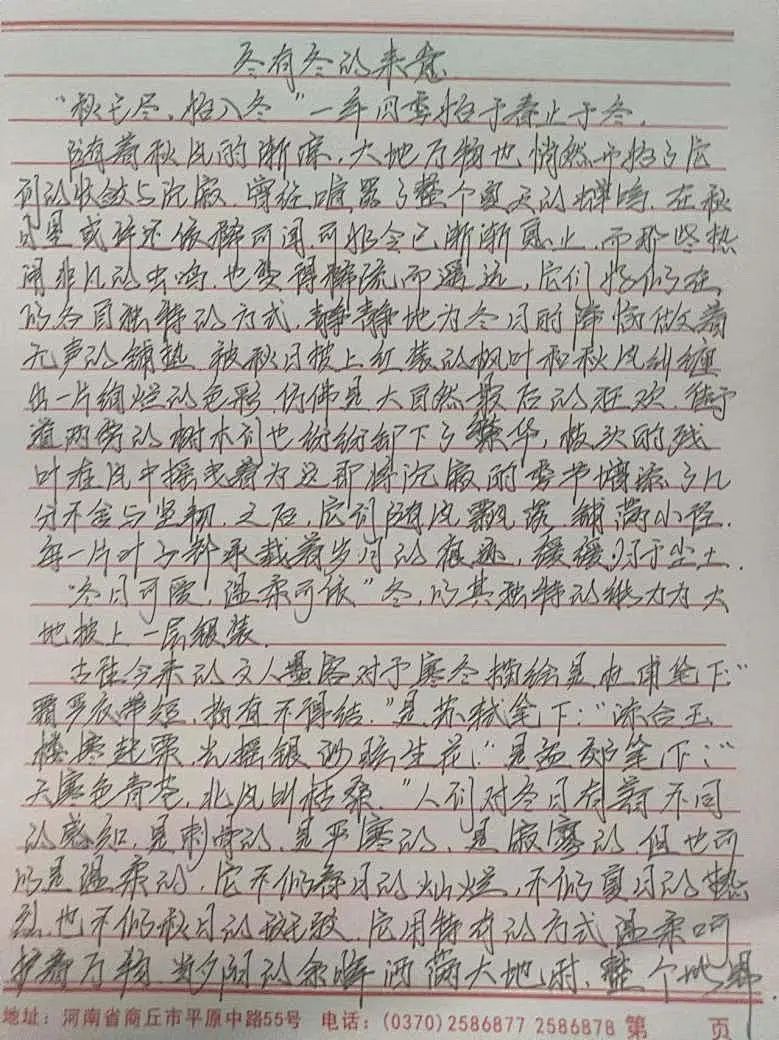 冬有冬的来意
“秋已尽，始入冬”一年四季始于春止于冬。
随着秋风的渐凉，大地万物也悄然开始了它
们的收敛与沉寂，曾经喧嚣了整个夏天的蝉鸣，在秋
日里或许还依稀可闻，可如今已渐渐息止，而那些热
闹非凡的虫鸣，也变得稀疏而遥远，它们好似在
以各自独特的方式，静静地为冬日的降临做着
无声的铺垫，被秋日披上红装的枫叶和秋风纠缠
出一片绚烂的色彩，仿佛是大自然最后的狂欢，街
道两旁的树木们也纷纷卸下了繁华，枝头的残
叶在风中摇曳着为这即将沉寂的季节增添了几
分不舍与坚韧，之后，它们随风飘落，铺满小径，
每一片叶子都承载着岁月的痕迹，缓缓归于尘土。
“冬日可爱，温柔可依”冬，以其独特的魅力为大
地披上一层银装。
古往今来的文人墨客对于寒冬描绘是杜甫笔下：“
霜严衣带短，指直不得结。”是苏轼笔下：“冻合玉
楼寒起粟，光摇银海眩生花。”是孟郊笔下：“
天寒色青苍，北风叫枯桑。”人们对冬日有着不同
的感知，是刺骨的，是严寒的，是寂寥的，但也可
以是温柔的，它不似春日的灿烂，不似夏日的热
烈，也不似秋日的，它用特有的方式，温柔呵
护着万物，当夕阳的余晖洒满大地时，整个世界
地址：河南省商丘市平原中路55号 电话：(0370)2586877 2586878 第 页